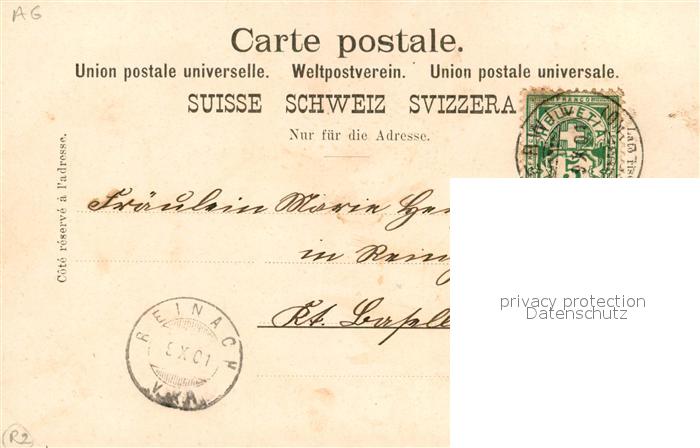 AG
Carte postale.
Union postale universelle. Weltpostverein. Union postale universale.
SUISSE SCHWEIZ SVIZZERA
Nur für die Adresse.
Côté réservé à l'adresse.
FRANCO
HELVETIA
5
Fräulein Marie
in
Kt.
REINACH
X 01
privacy protection
Datenschutz
R2